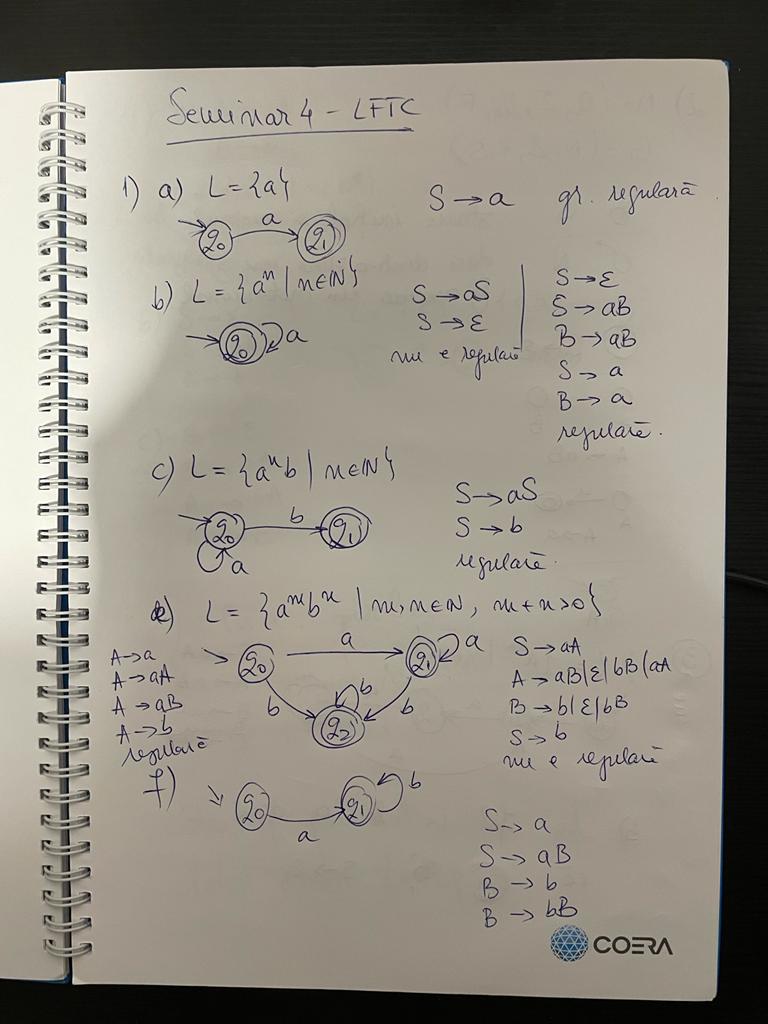 Seminar 4 - LFTC
1) a) L = {a}
S → a gr. regulară
q0 a q1
b) L = {a^n | n ∈ N}
q0 a
S → aS
S → ε
nu e regulară
S → ε
S → aB
B → aB
S → a
B → a
regulară.
c) L = {a^n b | n ∈ N}
q0 b q1
a
S → aS
S → b
regulară.
e) L = {a^m b^n | m, n ∈ N, m + n > 0}
A → a
A → aA
A → aB
A → b
regulară
q0 a q1 a
b b b
q2
S → aA
A → aB | ε | bB | aA
B → b | ε | bB
S → b
nu e regulară
f)
q0 a q1 b
S → a
S → aB
B → b
B → bB
COERA